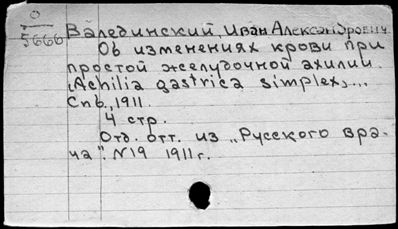 О
5666
Валединский, Иван Александрович.
Об изменениях крови при
простой желудочной ахилии.
(Achilia gastrica simplex)...
Спб, 1911.
4 стр.
Отд. отт. из „Русского вра-
ча". N19 1911 г.